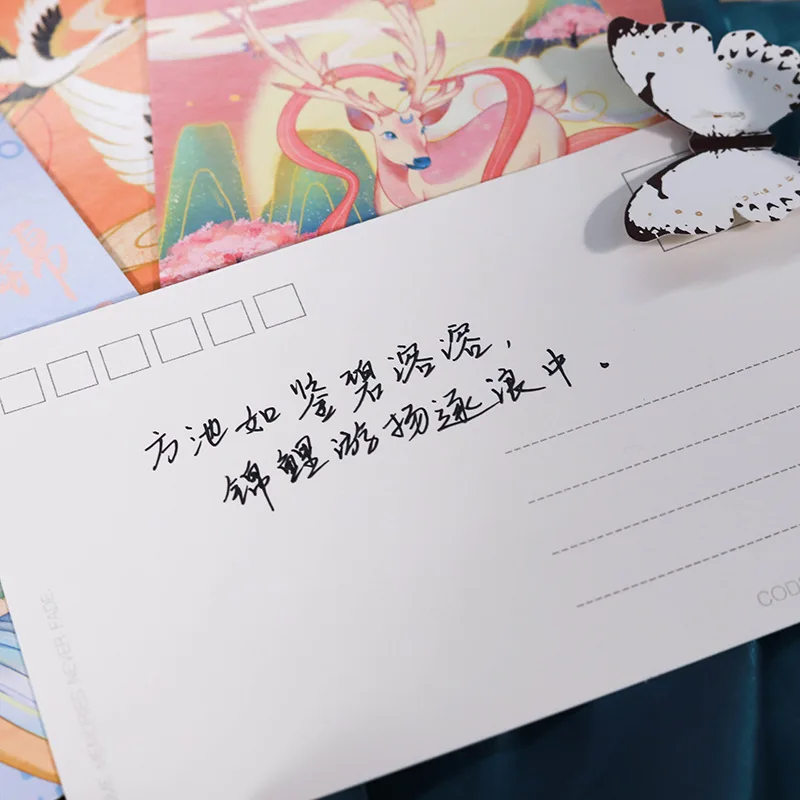 方池如鉴碧溶溶，
锦鲤游扬逐浪中。
锦
MEMORIES NEVER FADE.
COD